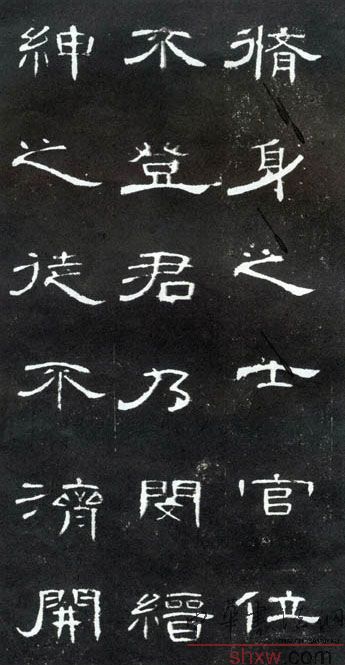 脩身之士官位
不登君乃閔縉
紳之徒不濟開
shxw.com